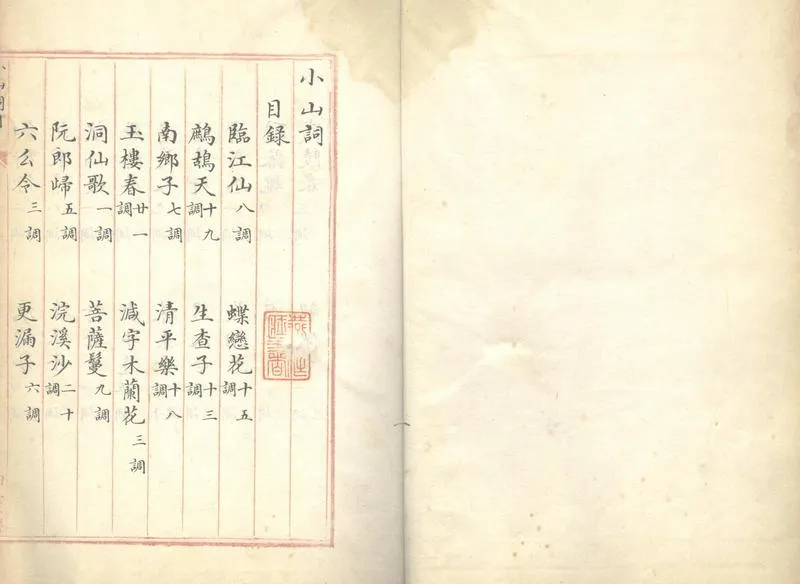 小山詞
目録
臨江仙八調 蝶戀花十五調
鷓鴣天十九調 生查子十三調
南鄉子七調 清平樂十八調
玉樓春廿一調 減字木蘭花三調
洞仙歌一調 菩薩鬘九調
阮郎歸五調 浣溪沙二十調
六么令三調 更漏子六調